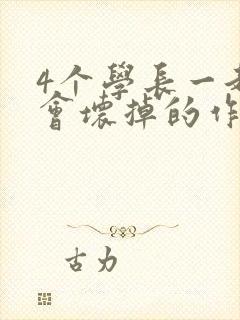 4个學長一
會壞掉的作
古力